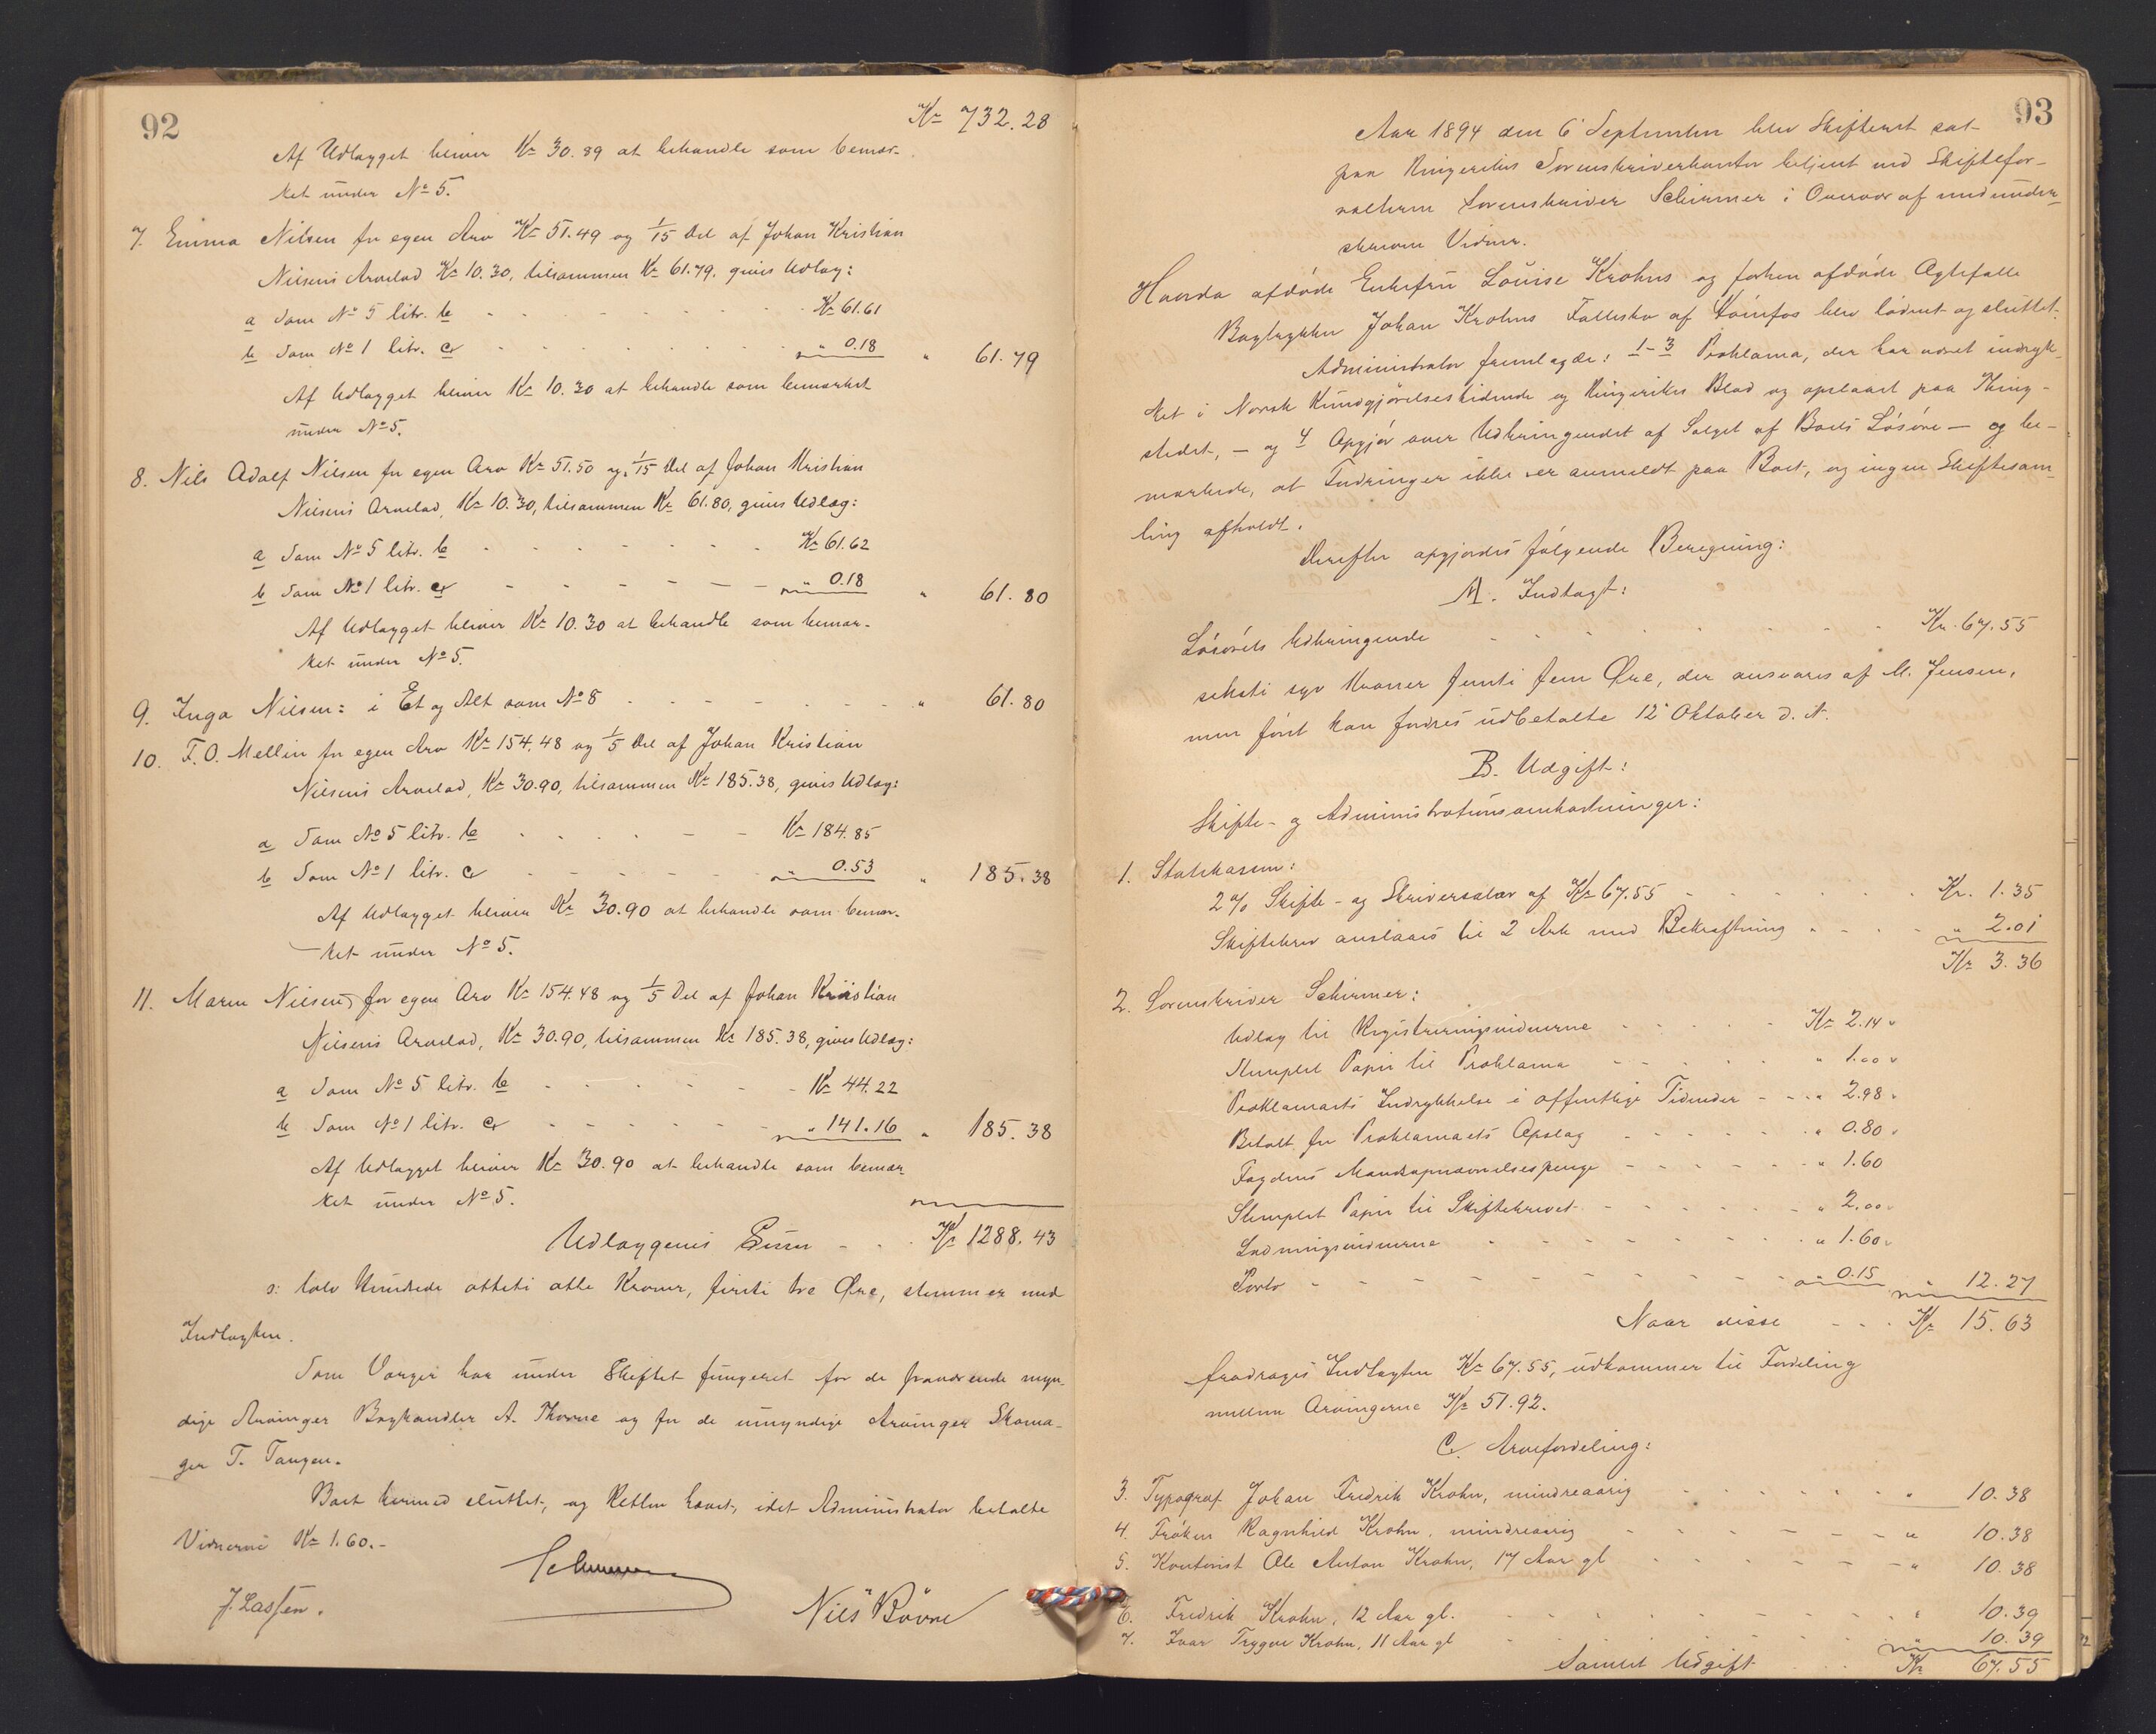 92
Kr 732.28
Af Udlægget bliver Kr 30.89 at behandle som bemær-
ket under No 5.
7. Emma Nilsen for egen Arv Kr 51.49 og 1/15 Del af Johan Kristian
Nilsens Arvelod Kr 10.30, tilsammen Kr 61.79, gives Udlæg:
a Som No 5 litr. b - - - Kr 61.61
b Som No 1 litr. c - - - " 0.18 " 61.79
Af Udlægget bliver Kr 10.30 at behandle som bemærket
under No 5.
8. Nils Adolf Nilsen for egen Arv Kr 51.50 og 1/15 Del af Johan Kristian
Nilsens Arvelod, Kr 10.30, tilsammen Kr 61.80, gives Udlæg:
a Som No 5 litr. b - - - Kr 61.62
b Som No 1 litr. c - - - " 0.18 " 61.80
Af Udlægget bliver Kr 10.30 at behandle som bemær-
ket under No 5.
9. Inga Nilsen: i Et og Alt som No 8 - - - " 61.80
10. F. O. Mellin for egen Arv Kr 154.48 og 1/5 Del af Johan Kristian
Nilsens Arvelod, Kr 30.90, tilsammen Kr 185.38, gives Udlæg:
a Som No 5 litr. b - - - Kr 184.85
b Som No 1 litr. c - - - " 0.53 " 185.38
Af Udlægget bliver Kr 30.90 at behandle som bemær-
ket under No 5.
11. Maren Nilsen, for egen Arv Kr 154.48 og 1/5 Del af Johan Kristian
Nilsens Arvelod, Kr 30.90, tilsammen Kr 185.38, gives Udlæg:
a Som No 5 litr. b - - - Kr 44.22
b Som No 1 litr. c - - - " 141.16 " 185.38
Af Udlægget bliver Kr 30.90 at behandle som bemær-
ket under No 5.
Udlæggenes Sum - - - Kr 1288.43
o: tolv Hundrede otteti otte Kroner, firti tre Øre, stemmer med
Indtægten.
Som Værger har under Skiftet fungeret for de fraværende myn-
dige Arvinger Boghandler A. Thorne og for de umyndige Arvinger Skoma-
ger T. Tangen.
Boet hermed sluttet, og Retten hævet, idet Administrator betalte
Vidnerne Kr 1.60.-
Schirmer
J. Lassen.
Nils Bövre
93
Aar 1894 den 6' September blev Skifteret sat
paa Ringerikes Sorenskriverkontor betjent med Skiftefor-
valteren Sorenskriver Schirmer i Overvær af medunder-
skrevne Vidner.
Hvorda afdøde Enkefru Louise Krohns og forhen afdøde Ægtefælle
Bogtrykker Johan Krohns Fællesbo af Hönefos blev lödset og sluttet.
Administrator fremlagde: 1-3 Proklama, der har været indryk-
ket i Norsk Kundgjörelsestidende og Ringerikes Blad og opslaaet paa Thing-
stedet, – og 4 Opgjör over Udbringendet af Salget af Boets Lösöre – og be-
mærkede, at Fordringer ikke er anmeldt paa Boet, og ingen Skiftesam-
ling afholdt.
Derefter opgjordes følgende Beregning:
A. Indtægt:
Lösörets Udbringende - - - Kr. 67.55
seksti syv Kroner femti fem Øre, der ansvares af M. Jensen,
men först kan fordres udbetalte 12' Oktober d. A.
B. Udgift:
Skifte- og Administrationsomkostninger:
1. Statskassen:
2 % Skifte- og Skriversalær af Kr 67.55 - - - Kr. 1.35
Skiftebrev anslaaes til 2 Ark med Bekræftning - - - " 2.01
Kr 3.36
2. Sorenskriver Schirmer:
Udlæg til Registreringsvidnerne - - - Kr 2.14
Stemplet Papir til Proklama - - - " 1.00
Proklamaets Indrykkelse i offentlige Tidender - - - " 2.98
Betalt for Proklamaets Opslag - - - " 0.80
Fogdens Mandsopnævnelsespenge - - - " 1.60
Stemplet Papir til Skiftebrevet - - - " 2.00
Lodningsvidnerne - - - " 1.60
Porto - - - " 0.15 " 12.27
Naar disse - - - Kr 15.63
fradrages Indtægten Kr 67.55, udkommer til Fordeling
mellem Arvingerne Kr 51.92.
C. Arvefordeling:
3. Typograf Johan Fredrik Krohn, mindreaarig - - - " 10.38
4. Fröken Ragnhild Krohn, mindreaarig - - - " 10.38
5. Kontorist Ole Anton Krohn, 17 Aar gl - - - " 10.38
6. Fredrik Krohn, 12 Aar gl. - - - " 10.39
7. Ivar Trygve Krohn, 11 Aar gl - - - " 10.39
Samlet Udgift - - - Kr 67.55